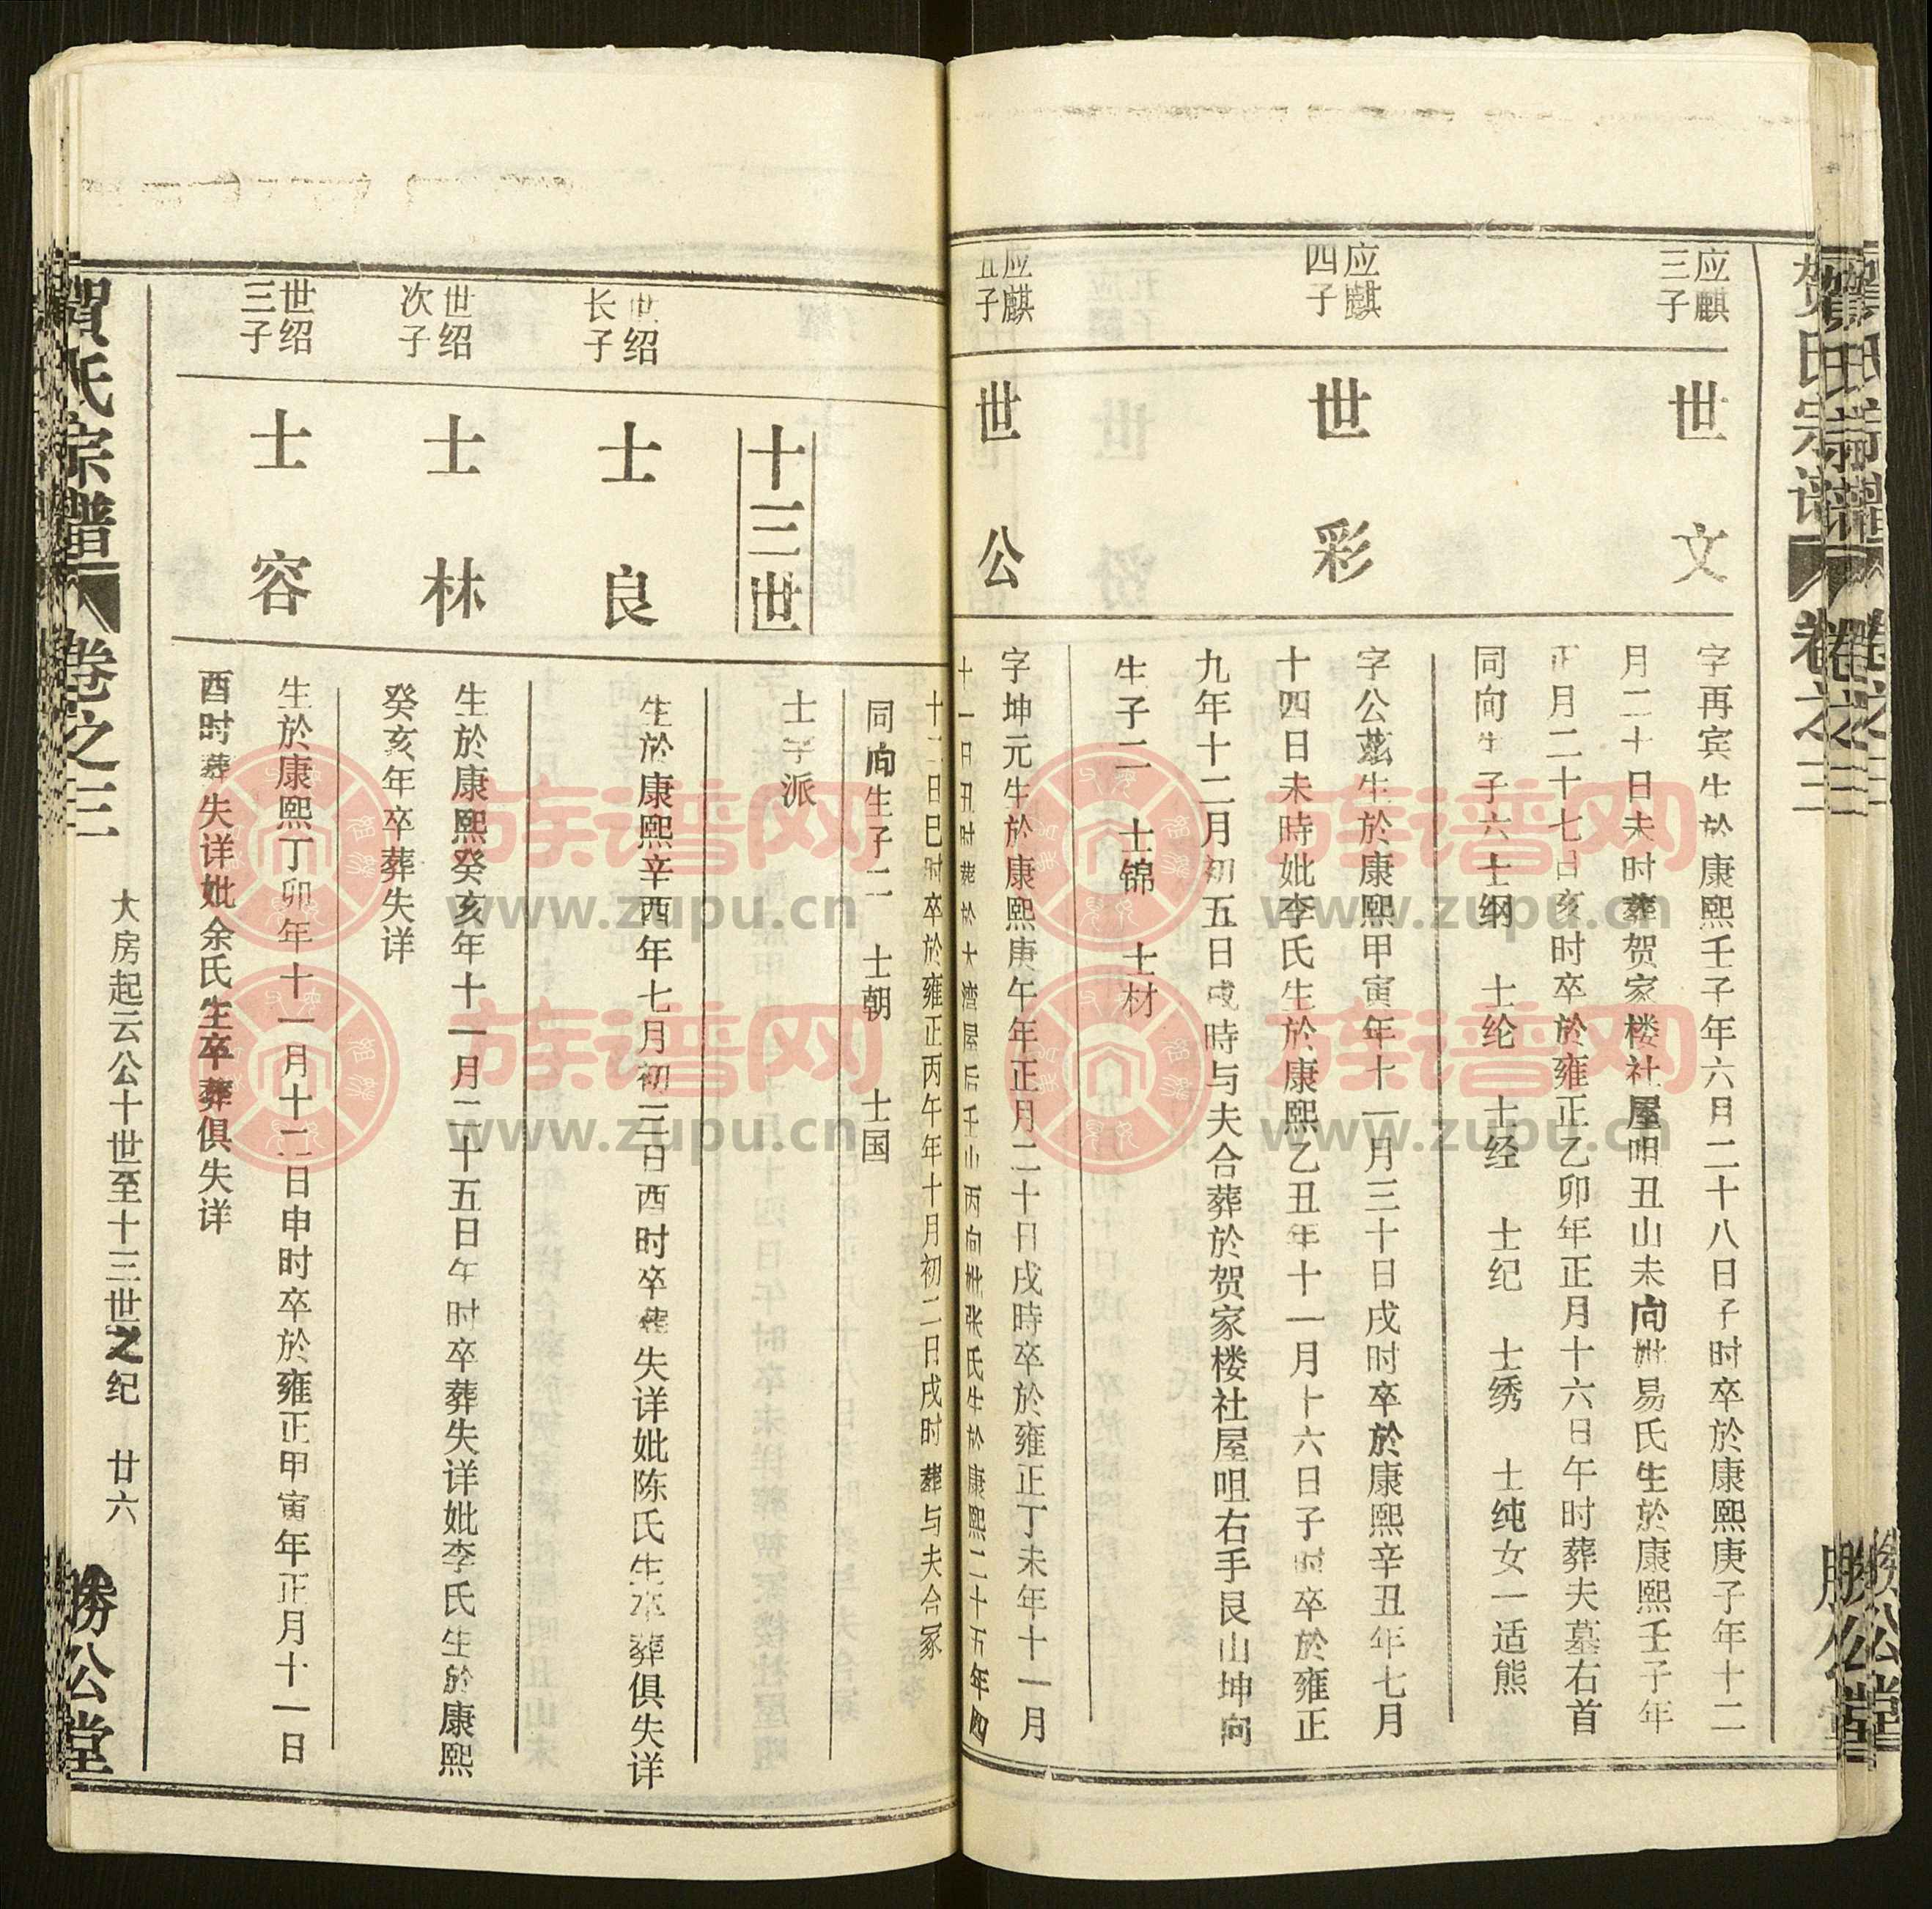 贺氏宗谱
卷之三
胜公堂
应麒
三子
世文
字再宾生於康熙壬子年六月二十八日子时卒於康熙庚子年十二
月二十日未时葬贺家楼社屋咀丑山未向妣易氏生於康熙壬子年
正月二十七日亥时卒於雍正乙卯年正月十六日午时葬夫墓右首
同向生子六士纲 士纶 士经 士纪 士绣 士纯女一适熊
应麒
四子
世彩
字公兹生於康熙甲寅年十一月三十日戌时卒於康熙辛丑年七月
十四日未時妣李氏生於康熙乙丑年十一月十六日子时卒於雍正
九年十二月初五日戌時与夫合葬於贺家楼社屋咀右手艮山坤向
生子二 士锦 士材
应麒
五子
世公
字坤元生於康熙庚午年正月二十日戌時卒於雍正丁未年十一月
十一日丑时葬於大湾屋后壬山丙向妣张氏生於康熙二十五年四
十二日巳时卒於雍正丙午年十月初二日戌时葬与夫合冢
同向生子二 士朝 士国
十三世
士字派
世绍
长子
士良
生於康熙辛酉年七月初三日酉时卒葬失详妣陈氏生卒葬俱失详
世绍
次子
士林
生於康熙癸亥年十一月二十五日午时卒葬失详妣李氏生於康熙
癸亥年卒葬失详
世绍
三子
士容
生於康熙丁卯年十一月十二日申时卒於雍正甲寅年正月十一日
酉时葬失详妣余氏生卒葬俱失详
賀氏宗譜
卷之三
大房起云公十世至十三世之纪 廿六
勝公堂
族谱网
www.zupu.cn
族谱网
www.zupu.cn
族谱网
www.zupu.cn
族谱网
www.zupu.cn